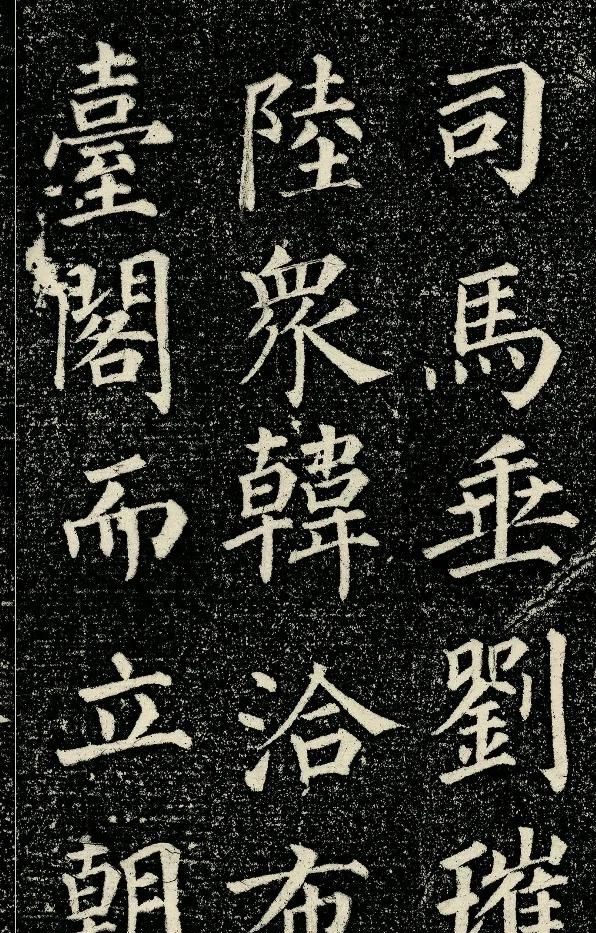 司馬垂劉璀
陸衆韓洽布
臺閣而立朝